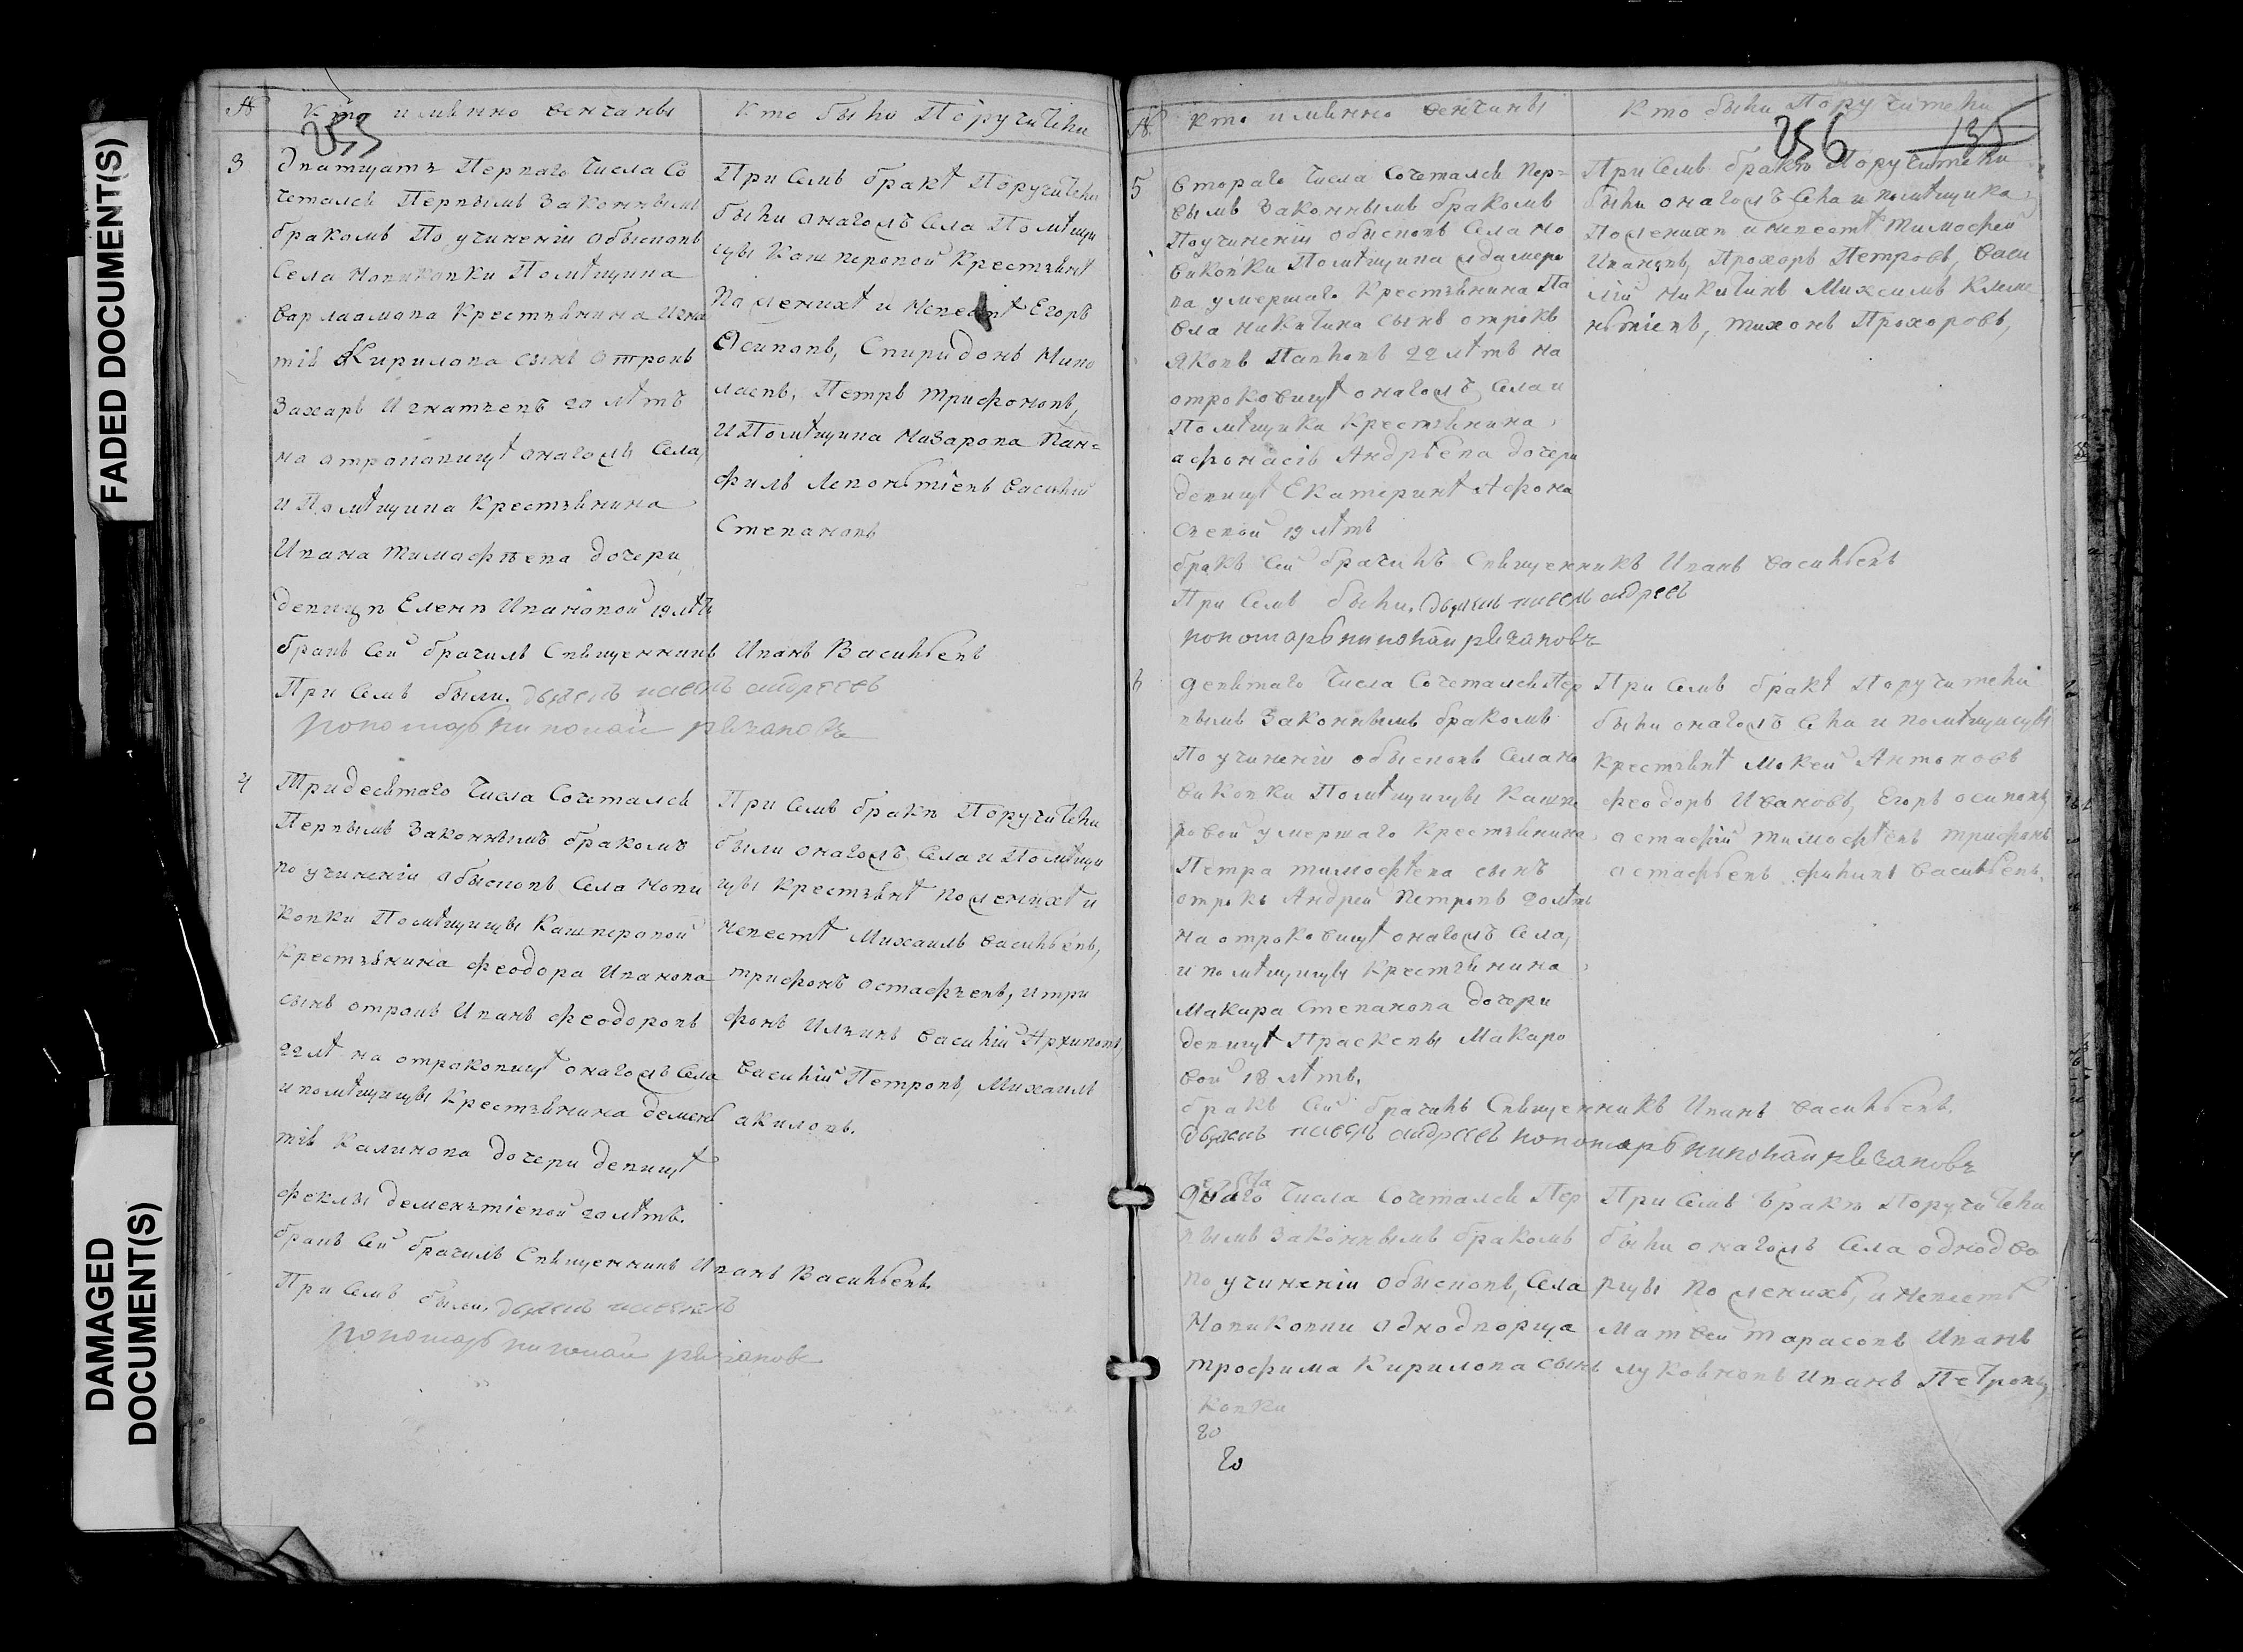 FADED DOCUMENT(S)
DAMAGED
DOCUMENT(S)
№ Кто имянно венчаны
Кто были Поручители
255
3
дватцать Перваго Числа Со
четался Первымъ Законнымъ
бракомъ По учиненiи обысковъ
Села Новиковки Помѣщика
Варлаамова Крестьянина Игна
тiя Кирилова сынъ отрокъ
Захаръ Игнатьевъ 20 лѣтъ
на отроковицѣ онагожъ Села,
и Помѣщика Крестьянина
Ивана Тимофѣева дочери
девицѣ Еленѣ Ивановой 19 лѣтъ
бракъ Сей брачилъ Священникъ Иванъ Васильевъ
При Семъ были. дьячекъ андреевъ
пономарь николай
При Семъ бракѣ Поручители
были онагожъ Села Помѣщи
цы Кашперовой Крестьянѣ
По женихѣ и Невестѣ Егоръ
Осиповъ, Спиридонъ Мико
лаевъ, Петръ Трифоновъ,
и Помѣщика Назарова Пан=
филъ Лепонтiевъ Василiй
Степановъ
4
Тридесятаго Числа Сочетался
Первымъ Законнымъ бракомъ
по учиненiи обысковъ Села Нови
ковки Помѣщицы Кашперовой
Крестьянина Феодора Иванова
сынъ отрокъ Иванъ Феодоровъ
22 лѣ на отроковицѣ онагожъ Села
и помѣщицы Крестьянина Демен
тiя Калинова дочери девицѣ
Феклы Дементiевой 20 лѣтъ.
бракъ Сей брачилъ Священникъ Иванъ Васильевъ.
При Семъ были, дьячекъ
пономарь николай
При Семъ бракѣ Поручители
были онагожъ Села и Помѣщи
цы Крестьянѣ По женихѣ и
Невестѣ Михаилъ Васильевъ,
Трифонъ Остафьевъ, и Три
фонъ Ильинъ Василiй Архиповъ,
Василiй Петровъ, Михаилъ
Акиловъ.
№ Кто имянно венчаны
Кто были Поручители
256 135
5
втораго Числа Сочетался Пер=
вымъ Законнымъ бракомъ
По учиненiи обысковъ Села Но
виковки Помѣщика
ва умершаго Крестьянина Па
вла Никитина сынъ отрокъ
Яковъ Павловъ 22 лѣтъ на
отроковицѣ онагожъ Села и
Помѣщика Крестьянина
Афонасiя Андрѣева дочери
девицѣ Екатеринѣ Афона
сьевой 19 лѣтъ
бракъ Сей брачилъ Священникъ Иванъ Васильевъ
При Семъ были. дьячекъ андреевъ
пономарь николай
При Семъ бракѣ Поручители
были онагожъ Села и Помѣщика
По женихѣ и Невестѣ Тимофей
Ивановъ, Прохоръ Петровъ, Васи
лiй Никитинъ Михаилъ Клеме
нтiевъ, Тихонъ Прохоровъ,
6
девятаго Числа Сочетался Пер
вымъ Законнымъ бракомъ
По учиненiи обысковъ Села Но
виковки Помѣщицы Кашпе
ровой умершаго Крестьянина
Петра Тимофѣева сынъ
отрокъ Андрей Петровъ 20 лѣтъ
на отроковицѣ онагожъ Села,
и помѣщицы Крестьянина
Макара Степанова дочери
девицѣ Прасковьи Макаро
вой 18 лѣтъ.
бракъ Сей брачилъ Священникъ Иванъ Васильевъ.
дьячекъ андреевъ пономарь николай
При Семъ бракѣ Поручители
были онагожъ Села и помѣщицы
Крестьянѣ Мокей Антоновъ
Феодоръ Ивановъ, Егоръ Осиповъ,
Остафiй Тимофѣевъ Трифонъ
Остафьевъ Филипъ Васильевъ.
Числа Сочетался Пер
вымъ Законнымъ бракомъ
По учиненiи обысковъ, Села
Новиковки однодворца
Трофима Кирилова сынъ
ковки
20
20
При Семъ бракѣ Поручители
были онагожъ Села однодво
рцы По женихѣ, и Невестѣ
Матвей Тарасовъ Иванъ
Иванъ Петровъ,